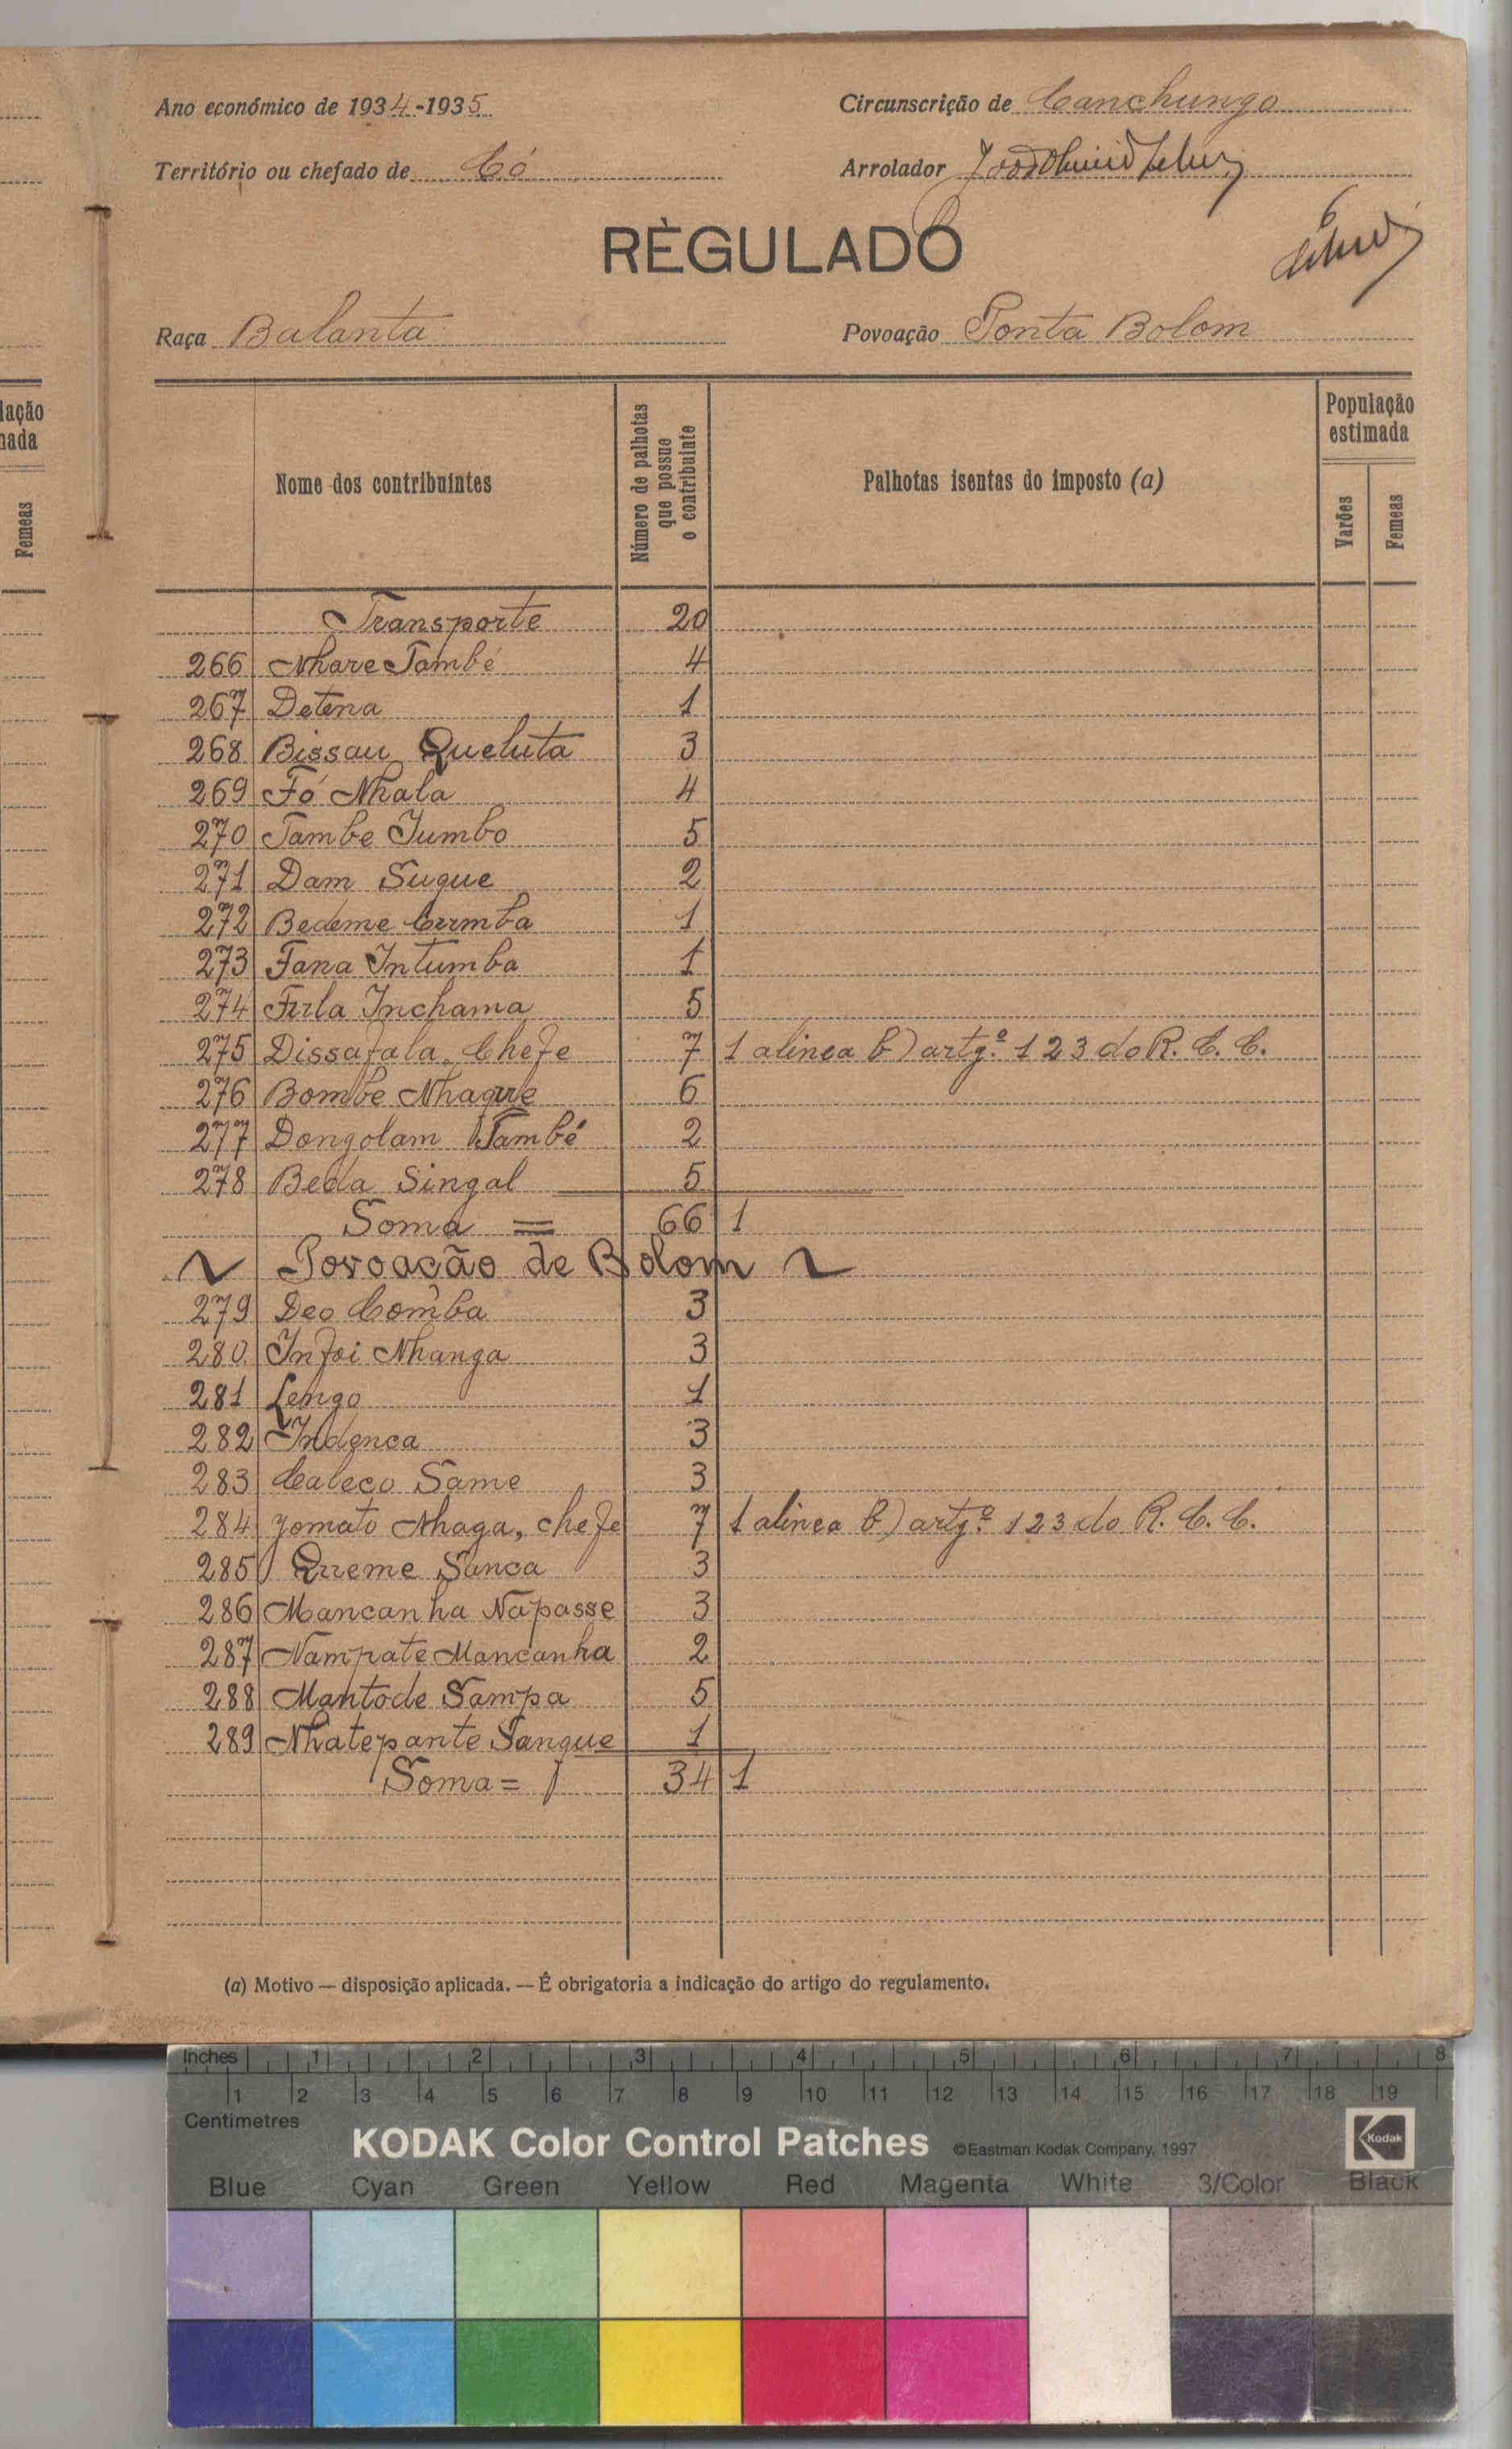 Ano económico de 1934-1935
Circunscrição de Canchungo
Território ou chefado de Có
Arrolador
6
RÈGULADO
Raça Balanta
Povoação Ponta Bolom
lação
nada
Femeas
Nome dos contribuintes
Número de palhotas
que possue
o contribuinte
Palhotas isentas do imposto (a)
População
estimada
Varões
Femeas
Transporte 20
266 Nhare També 4
267 Detena 1
268 Bissau Queluta 3
269 Fó Nhala 4
270 Tambe Jumbo 5
271 Dam Sugue 2
272 Bedeme Cumba 1
273 Fana Intumba 1
274 Fula Inchama 5
275 Dissafala, Chefe 7 1 alinea b) artgº 123 do R. C. C.
276 Bombe Nhague 6
277 Dongolam També 2
278 Beda Singal 5
Soma = 66 1
Povoacão de Bolom
279 Deo Comba 3
280 Infoi Nhanga 3
281 Lengo 1
282 Indenca 3
283 Caleco Same 3
284 Yomato Nhaga, chefe 7 1 alinea b) artgº 123 do R. C. C.
285 Queme Sanca 3
286 Mancanha Napasse 3
287 Nampate Mancanha 2
288 Mantode Sampa 5
289 Nhatepante Sangue 1
Soma = 34 1
(a) Motivo — disposição aplicada. — É obrigatoria a indicação do artigo do regulamento.
Inches 1 2 3 4 5 6 7 8
1 2 3 4 5 6 7 8 9 10 11 12 13 14 15 16 17 18 19
Centimetres
KODAK Color Control Patches ©Eastman Kodak Company, 1997 Kodak
Blue Cyan Green Yellow Red Magenta White 3/Color Black